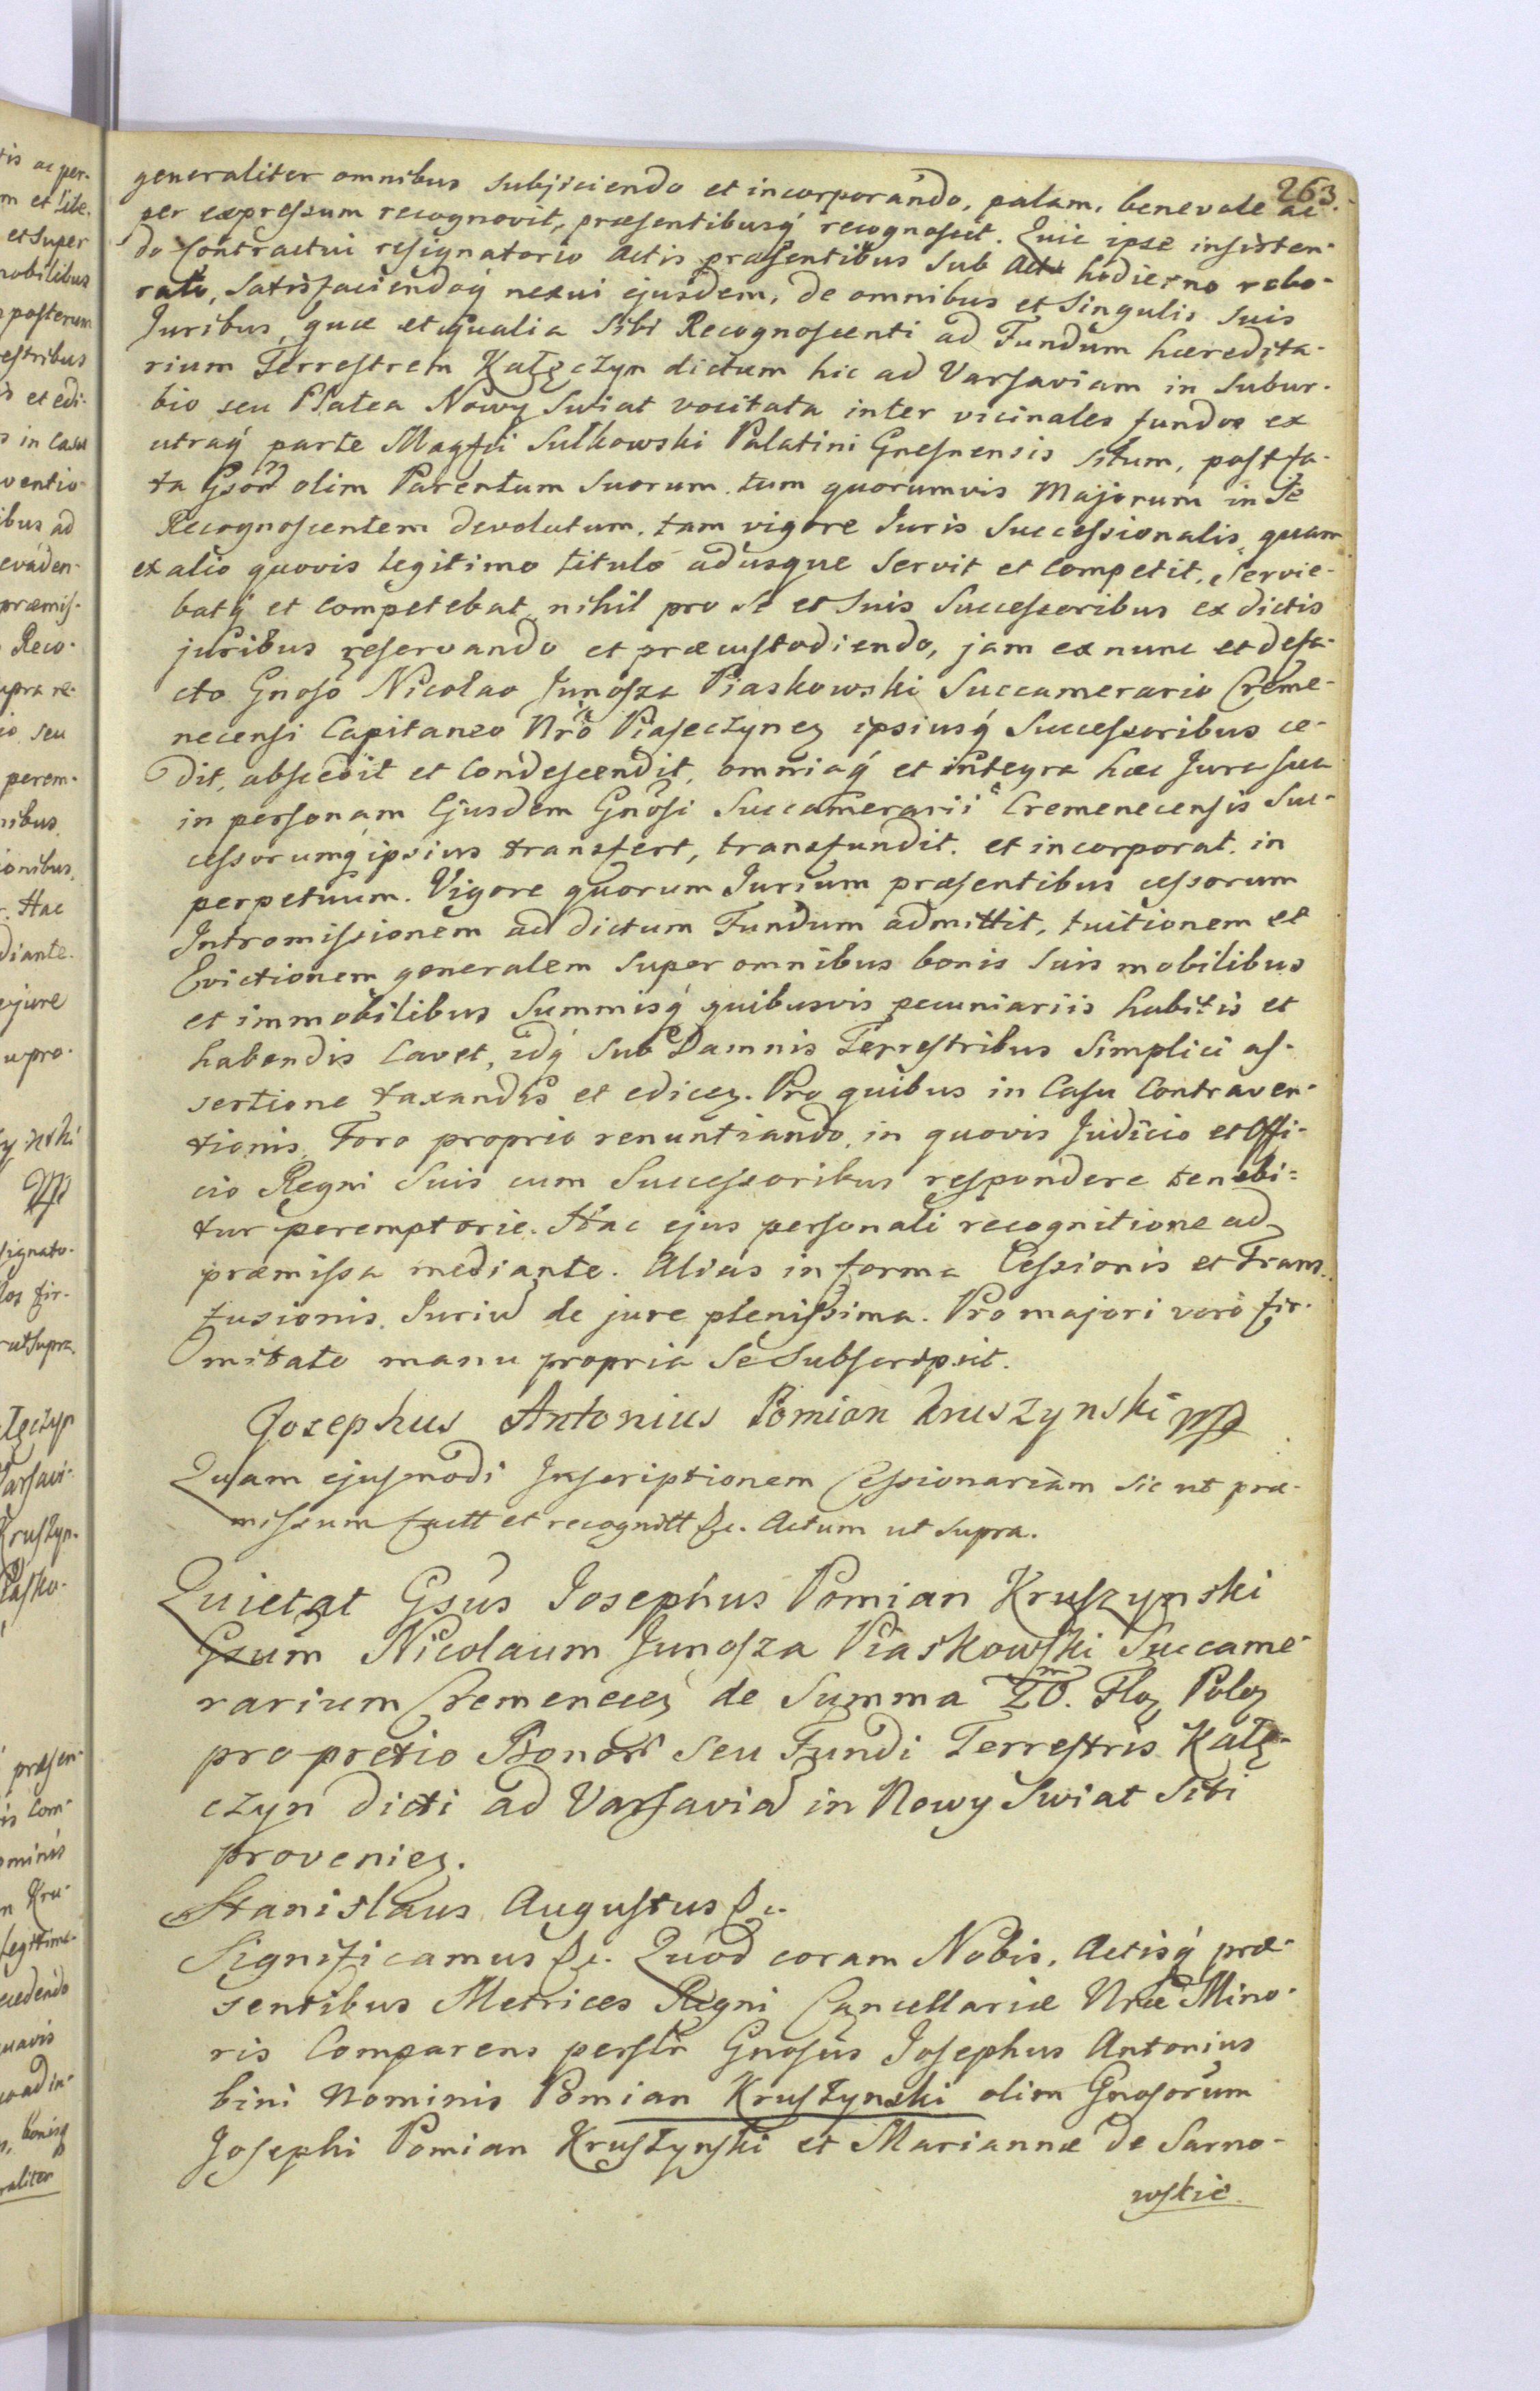 263.
generaliter omnibus subjiciendo et incorporando, palam, benevole ac
per expressum recognovit, præsentibusq́ recognoscit. Quic ipse insisten-
do Contractui resignatorio Actis præsentibus sub Actu hodierno robo-
rato, satisfaciendoq́ nexui ejusdem, de omnibus et singulis suis
Juribus, quæ et qualia sibi Recognoscenti ad Fundum hæredita-
rium Terrestrem Kałęczyn dictum hic ad Varsaviam in subur-
bio seu Platea Nowy Swiat vocitata inter vicinales fundos ex
utraq́ parte Magfci Sułkowski Palatini Gnesnensis situm, post fa-
ta Gsorm̃ olim Parentum suorum, tum quorumvis Majorum in se
Recognoscentem devolutum, tam vigore Juris Successionalis, quam
ex alio quovis legitimo titulo adusque servit et competit, servie-
batq́ et competebat, nihil pro se et suis Successoribus ex dictis
juribus reservando et præcustodiendo, jam ex nunc et defa-
cto Gnoso Nicolao Junosza Piaskowski Succamerario Creme-
necensi Capitaneo Nrõ Piaseczynez ipsiusq́ Successoribus ce-
dit, abscedit et condescendit, omniaq́ et integra hæc Jura sua
in personam Ejusdem Gnõsi Succamerarii Cremenecensis Suc-
cessorumq́ ipsius transfert, transfundit et incorporat in
perpetuum. Vigore quorum Jurium præsentibus cessorum
Intromissionem ad dictum Fundum admittit, tuitionem et
Evictionem generalem super omnibus bonis suis mobilibus
et immobilibus Summisq́ quibusvis pecuniariis habitis et
habendis Cavet, idq́ sub Damnis Terrestribus simplici as-
sertione taxandis et edicez. Pro quibus in Casu Contraven-
tionis, Foro proprio renuntiando, in quovis Judicio et Offi-
cio Regni suis cum Successoribus respondere tenebi=
tur peremptorie. Hac ejus personali recognitione ad
præmissa mediante. Alias in forma Cessionis et Trans-
fusionis Juriu͂ de jure plenissima. Pro majori verò fir-
mitate manu propria se subscripsit.
Josephus Antonius Pomian Kruszynski mp
Quam ejusmodi Inscriptionem Cessionariam sic ut præ-
missum factt et recognitt &c. Actum ut supra.
Quietat Gsus Josephus Pomian Kruszynski
Gsum Nicolaum Junosza Piaskowski Succame-
rarium Cremenecez de Summa 20.m Floz Poloz
pro pretio Bonorm̃ seu Fundi Terrestris Kałę-
czyn dicti ad Varsavia͂ in Nowy Swiat sibi
proveniez.
Stanislaus Augustus &c.
Significamus &c. Quod coram Nobis, Actisq́ præ-
sentibus Metrices Regni Cancellariæ Nræ Mino-
ris Comparens perslr Gnosus Josephus Antonius
bini Nominis Pomian Kruszynski olim Gnosorum
Josephi Pomian Kruszynski et Mariannæ de Sarno-
wskie